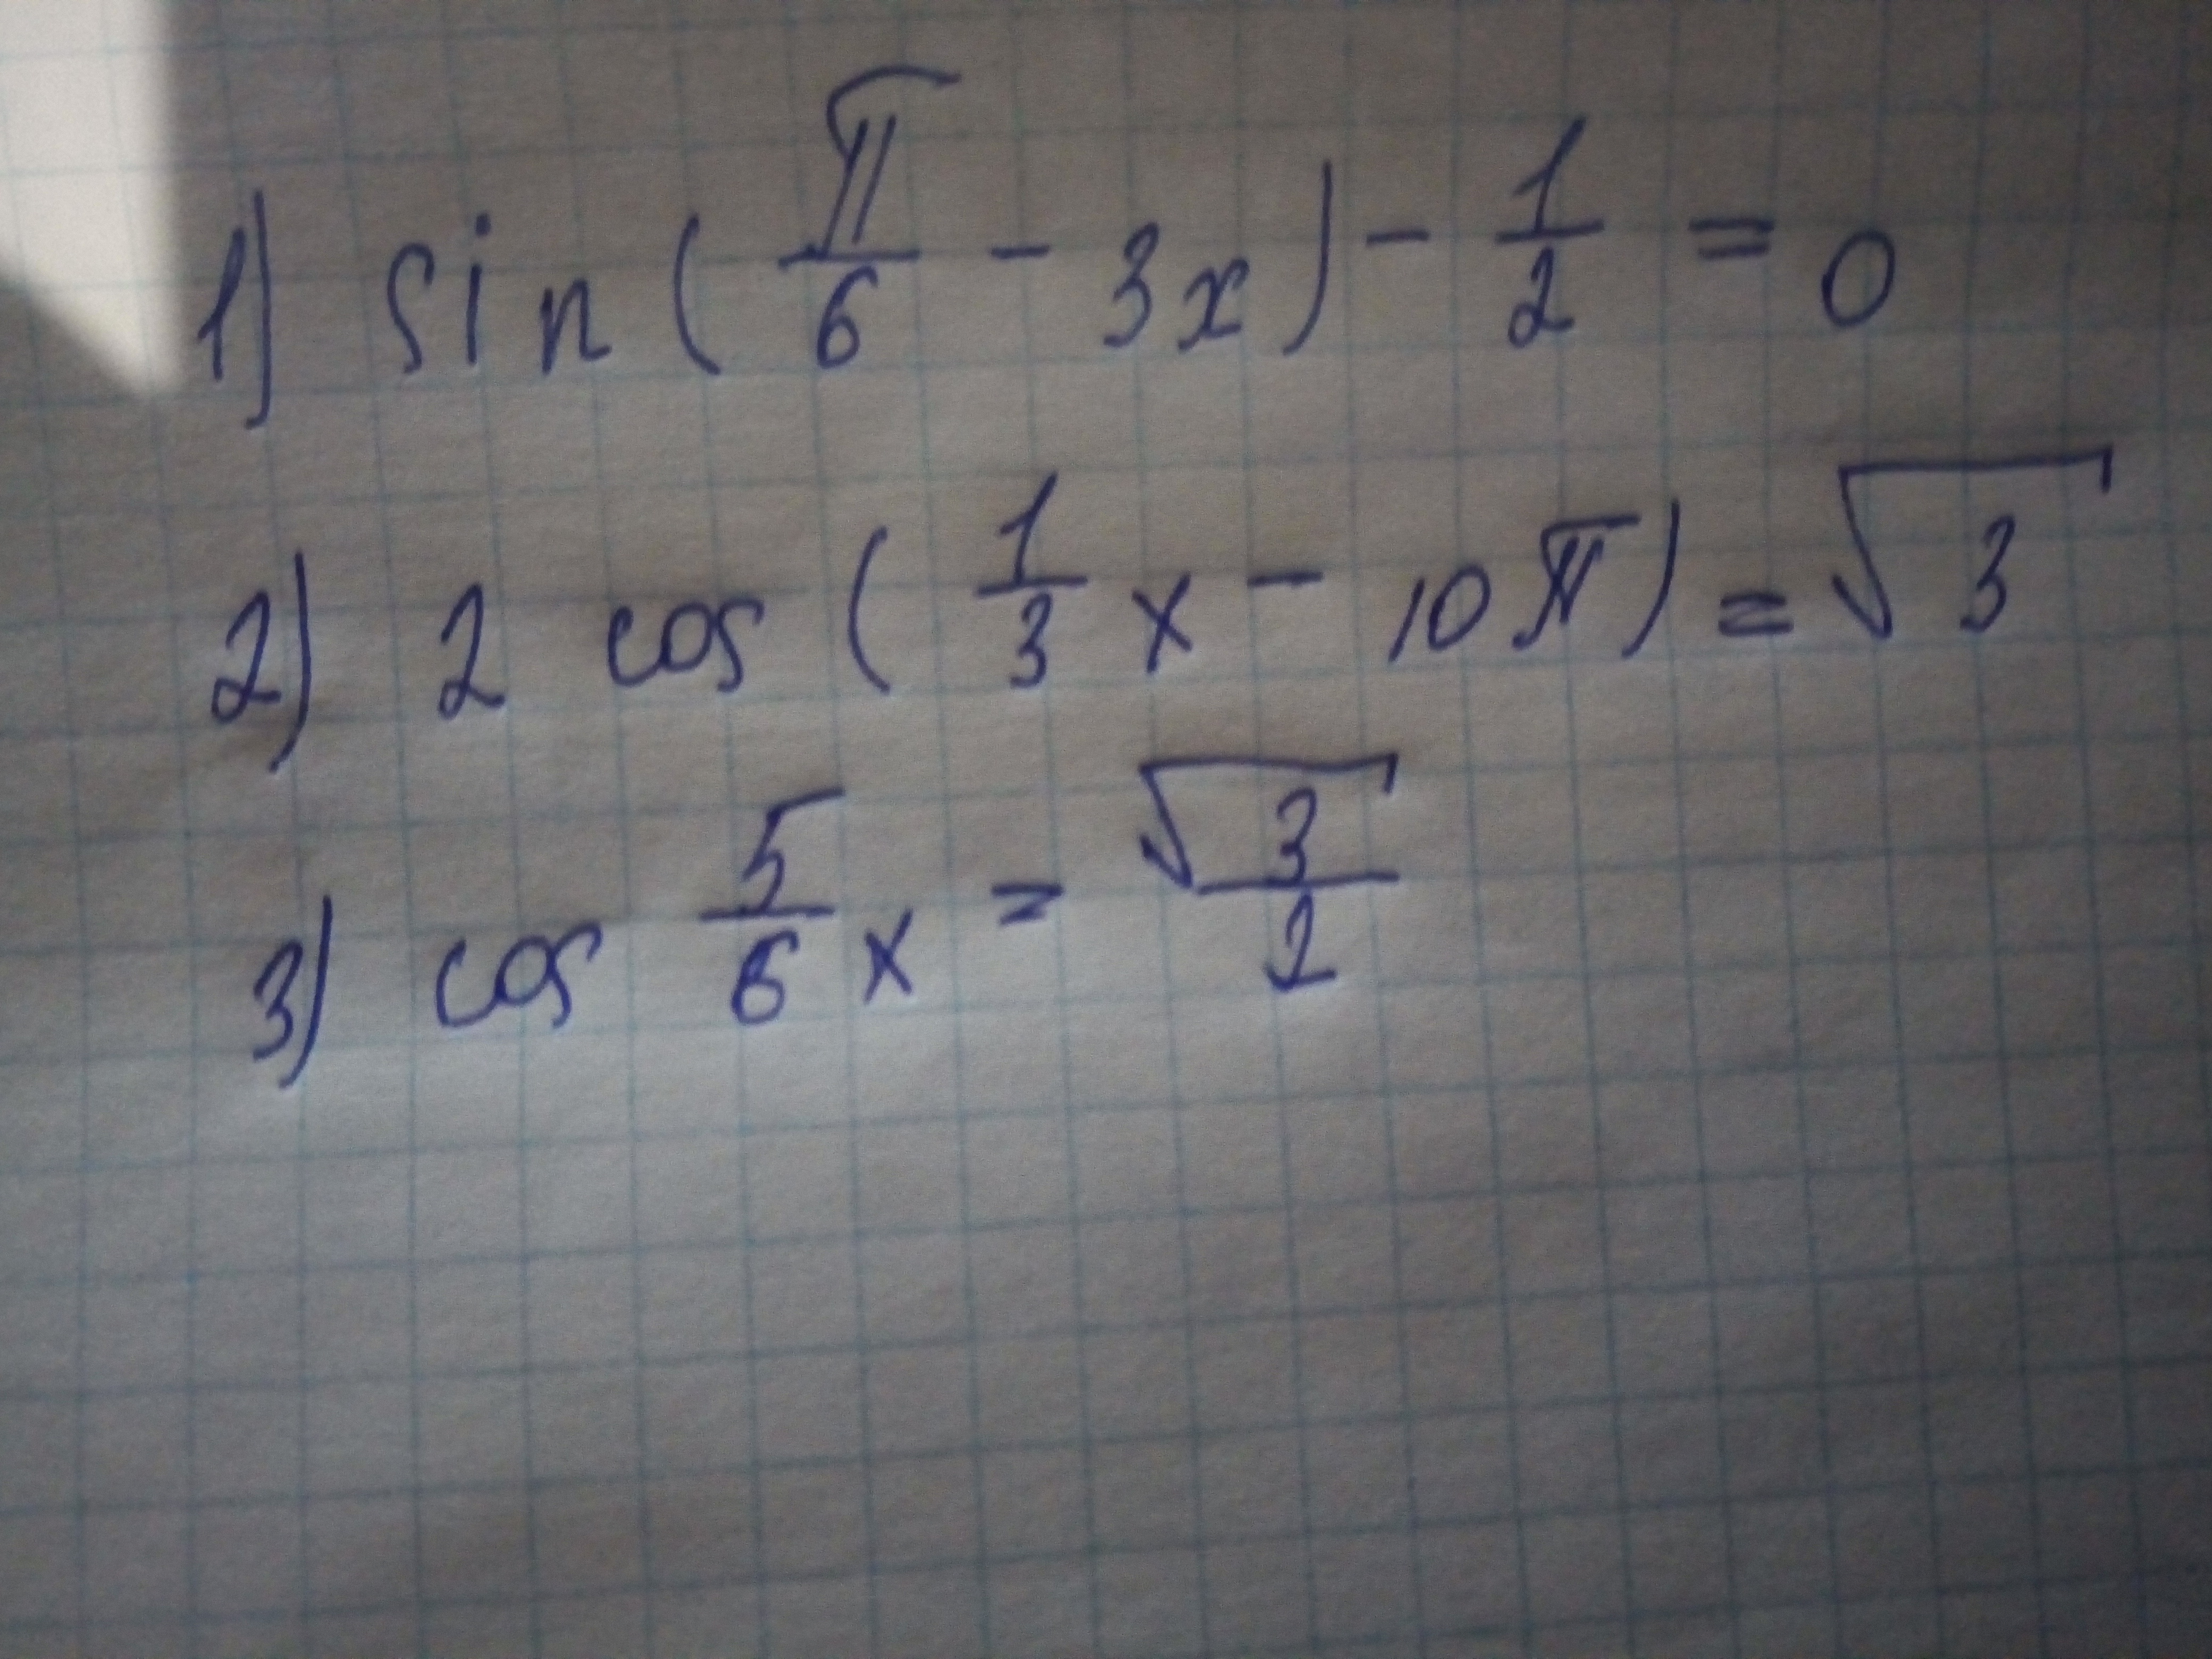 1) sin(π/6 - 3x) - 1/2 = 0
2) 2 cos(1/3 x - 10π) = √3
3) cos 5/6 x = √3/2